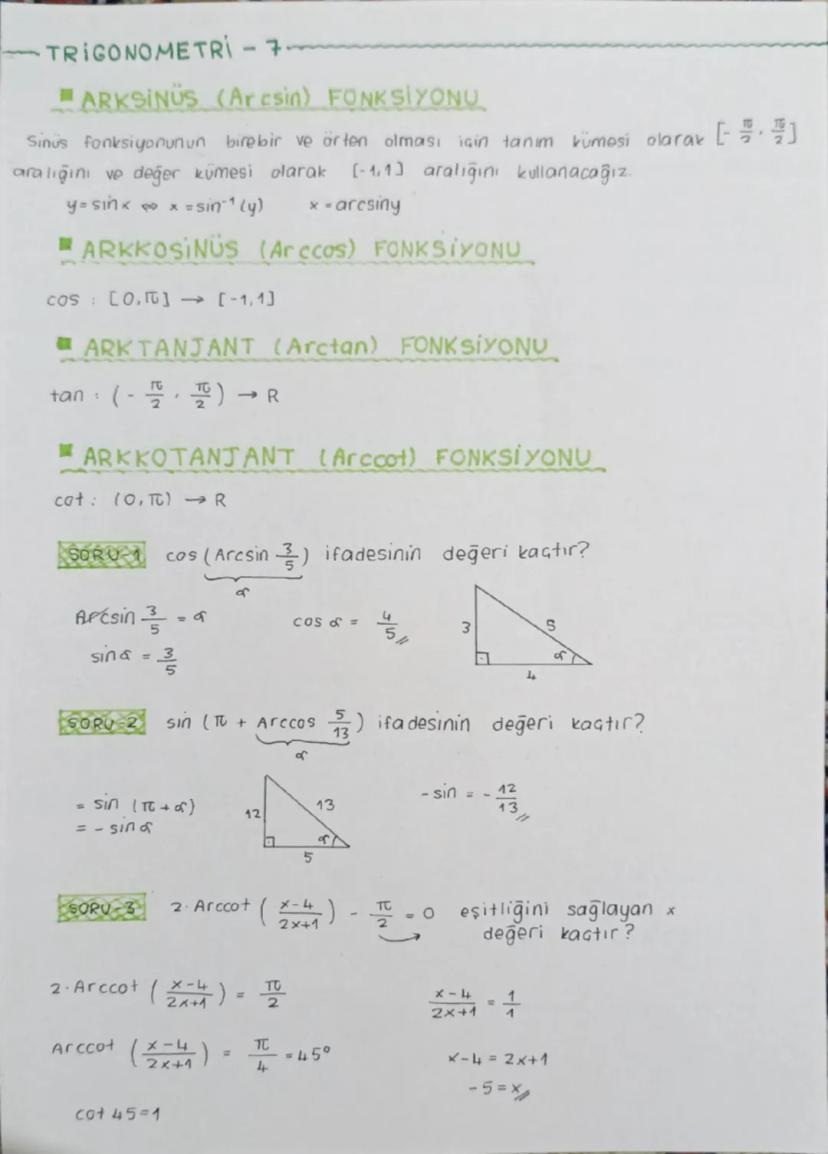 TRİGONOMETRİ - 7
ARKSİNÜS (Arcsin) FONKSİYONU
Sinüs fonksiyonunun birebir ve örten olması için tanım kümesi olarak [-π/2, π/2]
aralığını ve değer kümesi olarak [-1,1] aralığını kullanacağız.
y=sinx ⇔ x=sin⁻¹(y) x=arcsiny
ARKKOSİNÜS (Arccos) FONKSİYONU
cos : [0,π] → [-1,1]
ARKTANJANT (Arctan) FONKSİYONU
tan : (-π/2, π/2) → R
ARKKOTANJANT (Arccot) FONKSİYONU
cot : (0,π) → R
SORU-1 cos (Arcsin 3/5) ifadesinin değeri kaçtır?
α
Arcsin 3/5 = α cos α = 4/5 3 5
sinα = 3/5 α
4
SORU-2 sin (π + Arccos 5/13) ifadesinin değeri kaçtır?
α
= sin (π+α) 12 13 -sin = -12/13
= - sinα α
5
SORU-3 2·Arccot (x-4/2x+1) - π/2 = 0 eşitliğini sağlayan x
değeri kaçtır?
2·Arccot (x-4/2x+1) = π/2 x-4/2x+1 = 1/1
Arccot (x-4/2x+1) = π/4 = 45° x-4 = 2x+1
-5 = x
cot 45=1